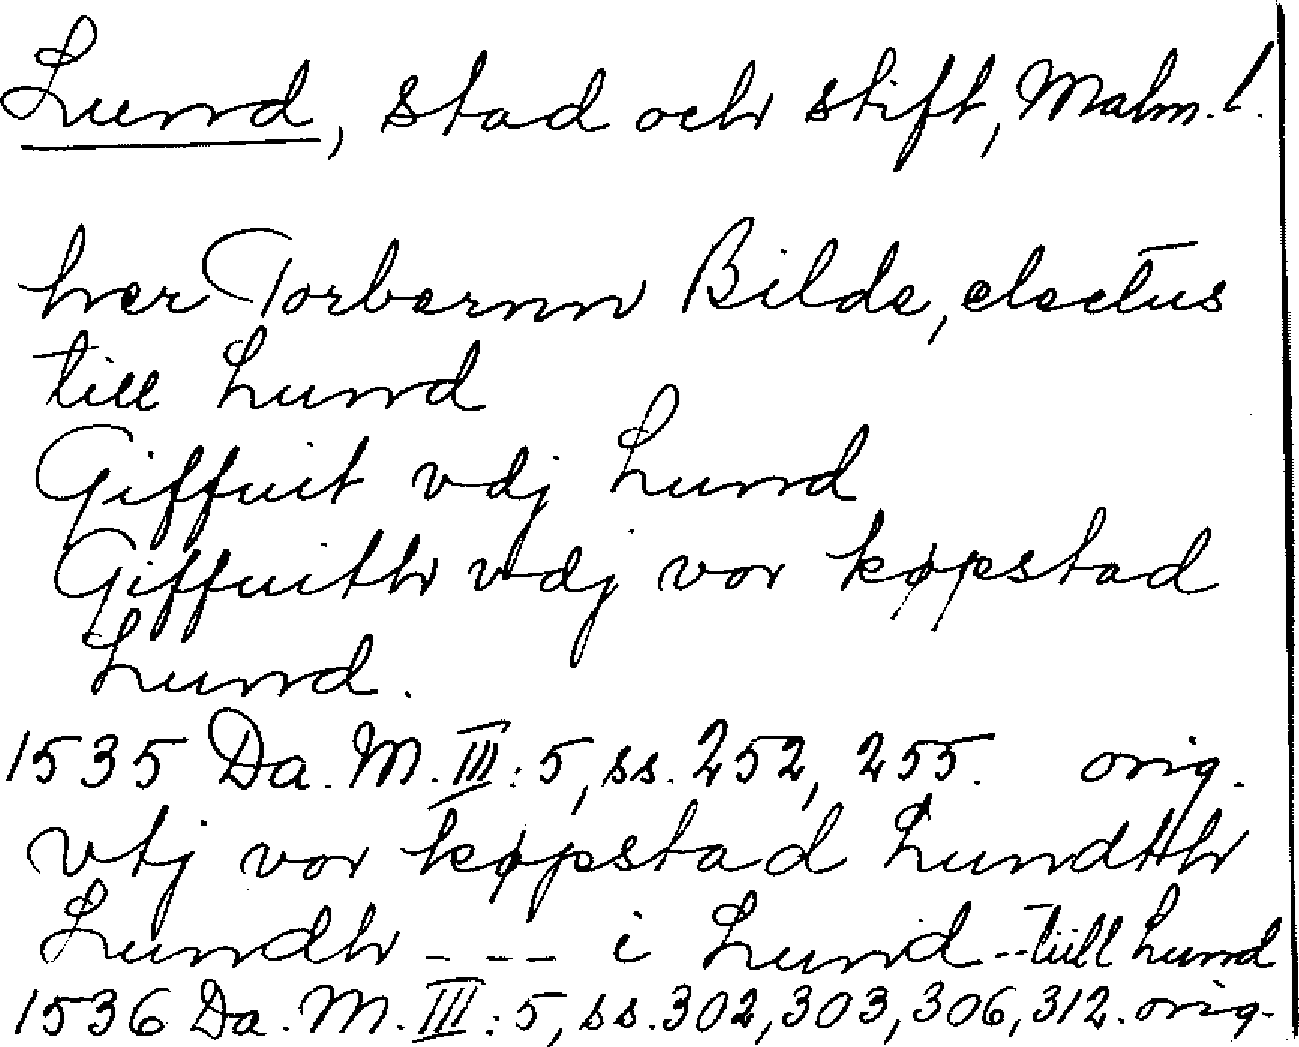 Lund, stad och stift, Malm. l.
her Torbernn Bilde, electus
till Lund
Giffuit vdj Lund
Giffuith vdj vor køpstad
Lund.
1535 Da. M. III: 5, ss. 252, 255. orig.
vtj vor køpstad Lundth
Lundh - - - i Lund -- tiill Lund
1536 Da. M. III: 5, ss. 302, 303, 306, 312. orig.